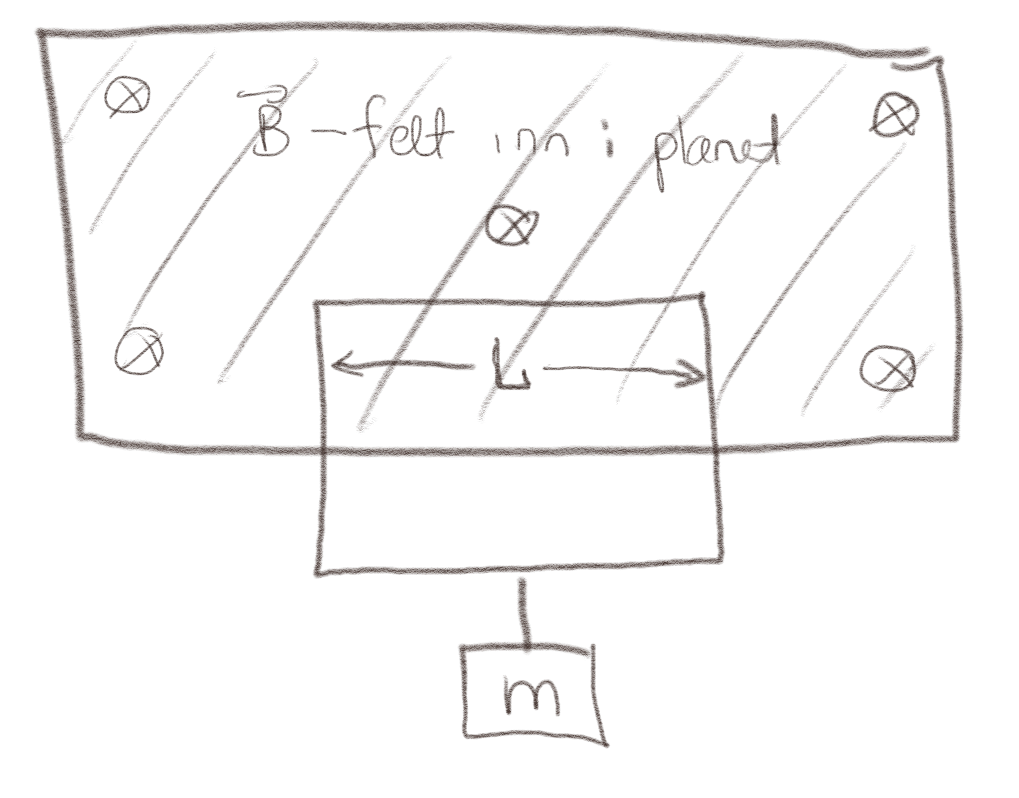 B⃗ - felt inn i planet
L
m